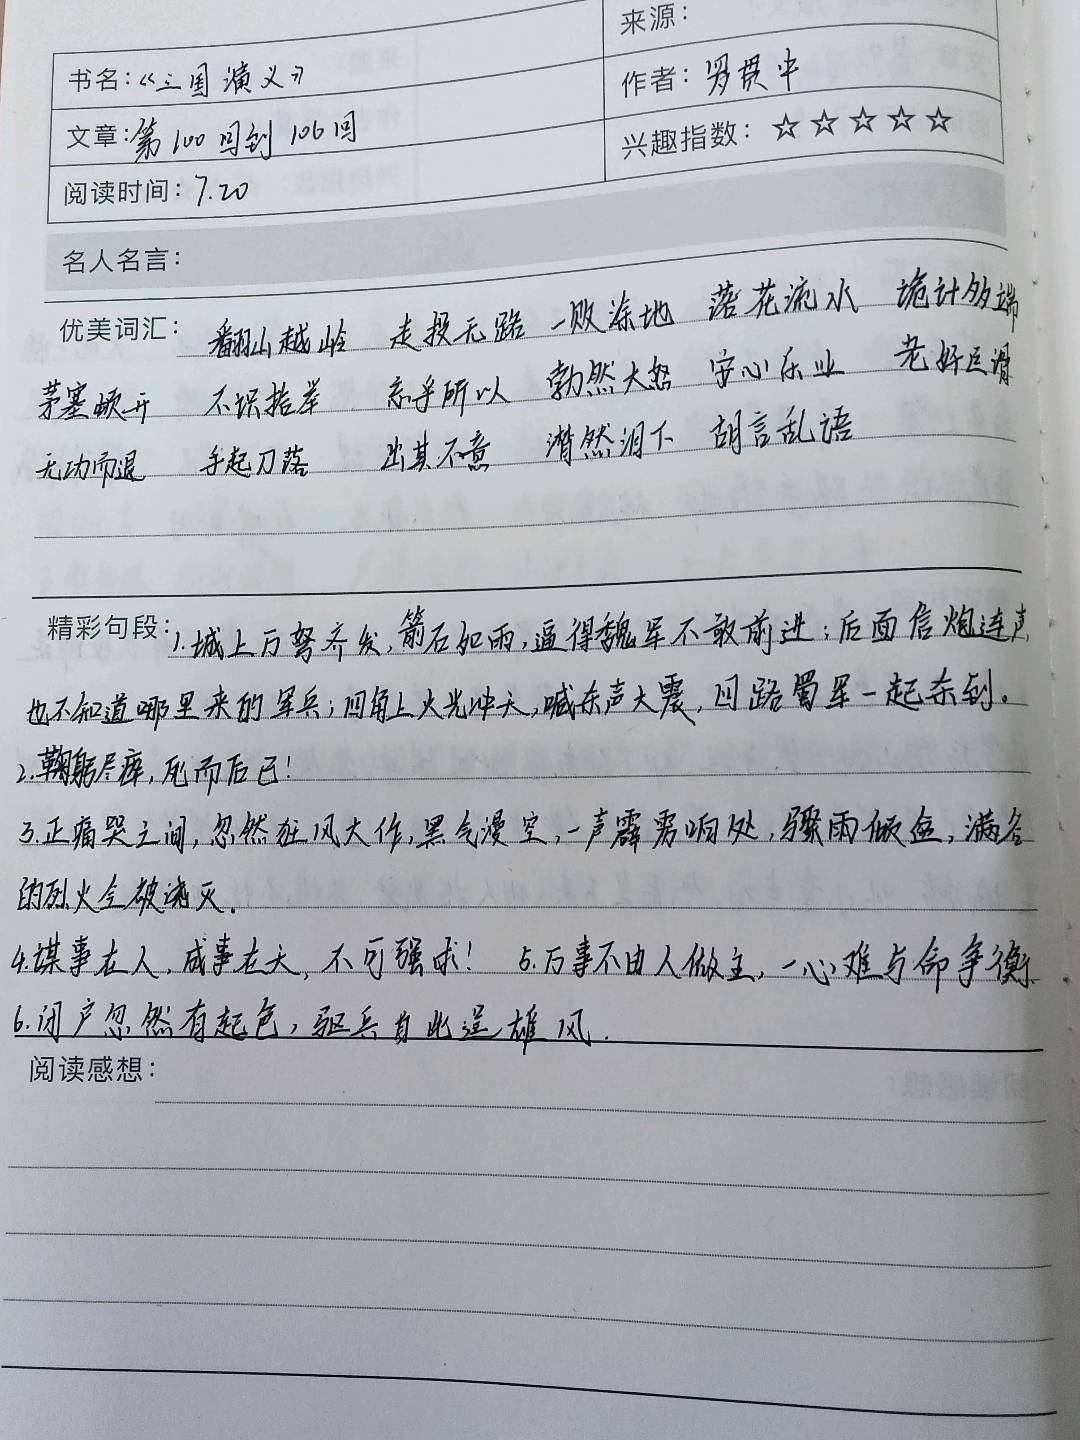 来源：
书名：《三国演义》
作者：罗贯中
文章：第100回到106回
兴趣指数：☆☆☆☆☆
阅读时间：7.20
名人名言：
优美词汇：翻山越岭 走投无路 一败涂地 落花流水 诡计多端
茅塞顿开 不识抬举 忘乎所以 勃然大怒 安心乐业 老奸巨滑
无功而退 手起刀落 出其不意 潸然泪下 胡言乱语
精彩句段：1.城上万弩齐发，箭石如雨，逼得魏军不敢前进；后面信炮连声
也不知道哪里来的军兵；四角上火光冲天，喊杀声大震，四路蜀军一起杀到。
2.鞠躬尽瘁，死而后已！
3.正痛哭之间，忽然狂风大作，黑气漫空，一声霹雳响处，骤雨倾盆，满谷
的烈火全被浇灭.
4.谋事在人，成事在天，不可强求！ 5.万事不由人做主，一心难与命争衡.
6.闭户忽然有起色，驱兵自此逞雄风.
阅读感想：